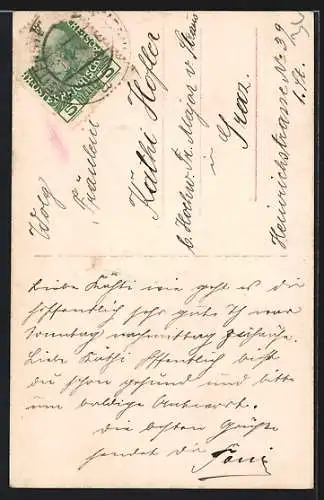 Wolg
Fräulein
Käthi Hofler
b. Hochw. Fr. Major v.
in
Graz
Heinrichstrasse No 39
1. St.
Liebe Käthi wie geht es dir
hoffentlich sehr gut. Ich war
Sonntag nachmittag zuhause.
Liebe Kathi hoffentlich bist
du schon gesund und bitte
um baldige Antwort.
die besten Grüße
sendet dir Toni